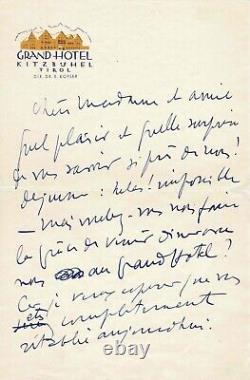 GRAND-HOTEL
KITZBÜHEL
TIROL
Chère Madame et amie
Quel plaisir et quelle surprise
de vous savoir si près de nous!
déjeuner: hélas! impossible
– mais voulez-vous nous faire
la grâce de venir
nous au grand hotel?
espérer que vous
êtes complètement
rétablie aujourdhui.
© ebay